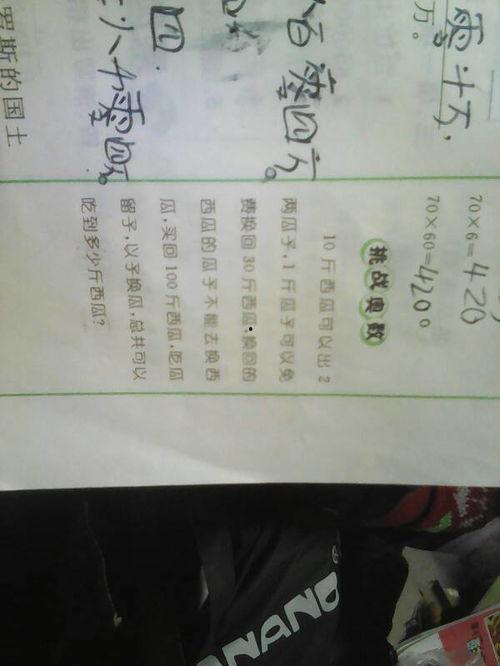 零十万,
万。
八百零四万。
四.
罗斯的国土
70×6=420
70×60=4200
挑战奥数
10斤西瓜可以出2
两瓜子,1斤瓜子可以免
费换回30斤西瓜,换回的
西瓜的瓜子不能去换西
瓜,买回100斤西瓜,吃瓜
留子,以子换瓜,总共可以
吃到多少斤西瓜?
NANO